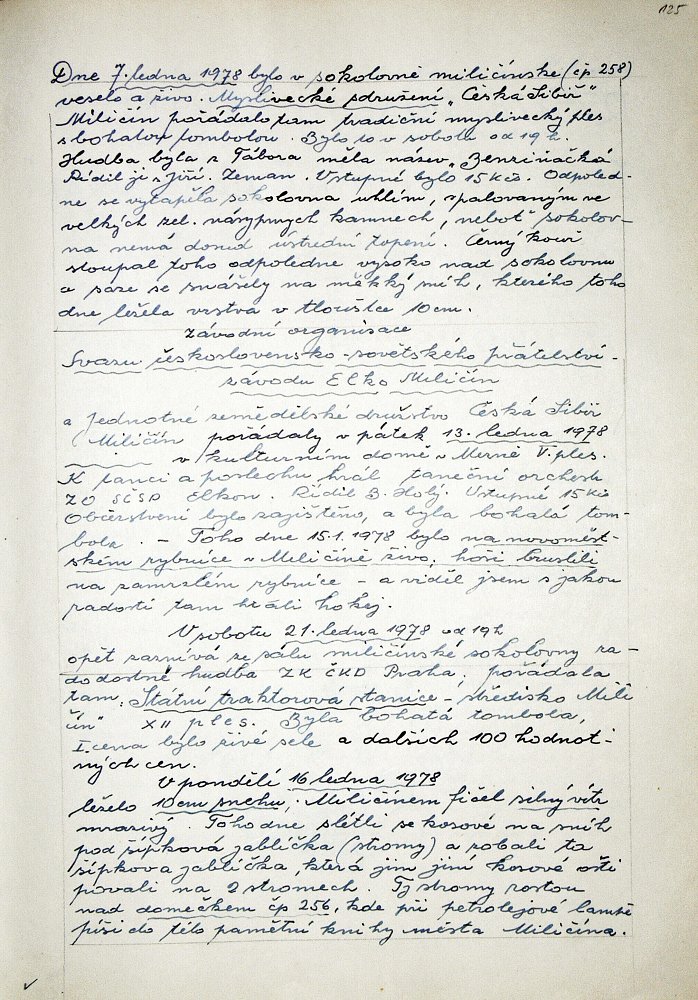 125
Dne 7. ledna 1978 bylo v sokolovně miličínske (čp 258)
veselo a živo. Myslivecké sdružení „Česká Sibiř"
Miličín pořádalo tam tradiční myslivecký ples
s bohatou tombolou. Bylo to v sobotu od 19 h.
Hudba byla z Tábora měla název „Benziňačka
Řídil ji Jiří. Zeman. Vstupné bylo 15 Kčs. Odpoled-
ne se vytápěla sokolovna uhlím, spalovaným ve
velkých žel. násypných kamnech, neboť sokolov-
na nemá dosud ustrední topení. Černý kouř
stoupal toho odpoledne vysoko nad sokolovnu
a saze se snášely na měkký sníh, kterého toho
dne ležela vrstva v tloušťce 10 cm.
Závodní organisace
Svazu československo-sovětského přátelství -
závodu Elko Miličín
a Jednotné zemědělské družstvo Česká Sibiř
Miličín pořádaly v pátek 13. ledna 1978
v kulturním domě v Mezně V. ples.
K tanci a poslechu hrál taneční orchestr
ZO SČSP Elkon. Řídil B. Holý. Vstupné 15 Kčs
Občerstvení bylo zajištěno, a byla bohatá tom-
bola. - Toho dne 15.1.1978 bylo na novoměst-
ském rybníce v Miličíně živo, hoši bruslili
na zamrzlém rybníce - a viděl jsem s jakou
radostí tam hráli hokej.
V sobotu 21. ledna 1978 od 19 h
opět zaznívá ze sálu miličínské sokolovny ra-
dostné hudba ZK ČKD Praha, pořádala
tam, Státní traktorová stanice - středisko Mili
čín" XII ples. Byla bohatá tombola,
I. cena bylo živé sele a dalších 100 hodnot-
ných cen.
V pondělí 16 ledna 1978
leželo 10 cm sněhu, Miličínem fičel silný vítr
mrazivý. Toho dne slétli se kosové na sníh
pod šípková jablíčka (stromy) a zobali ta
šípkova jablíčka, která jim jiní kosové oští
povali na 2 stromech. Tyto stromy rostou
nad domečkem čp 256, kde při petrolejové lampě
píši do této pamětní knihy města Miličína.